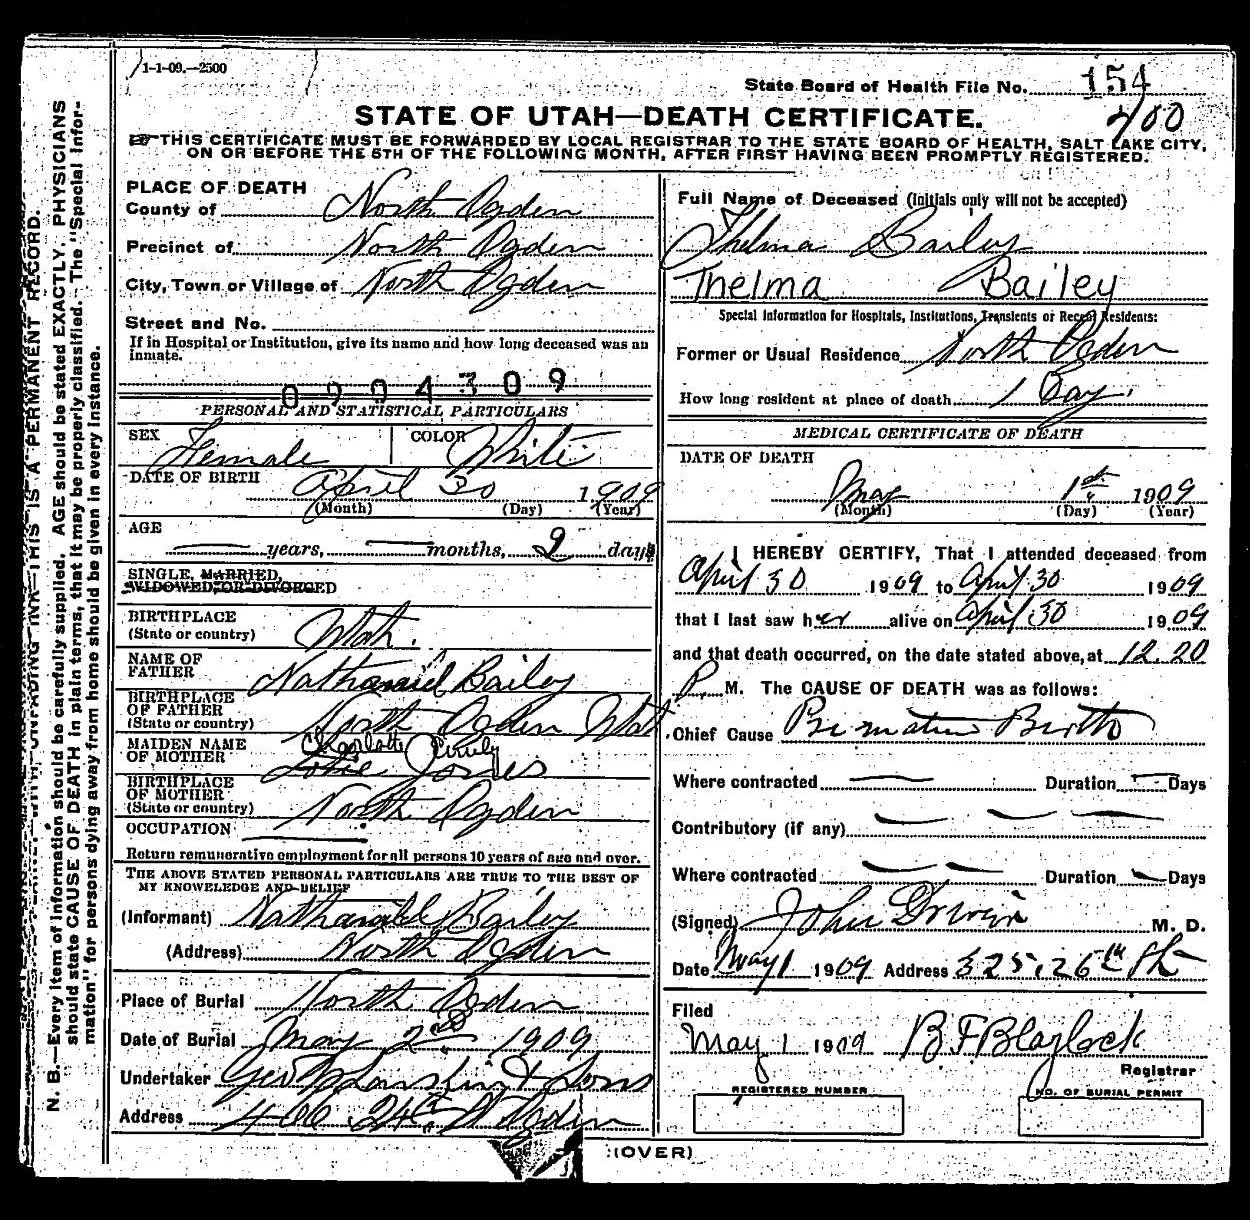 1-1-09.—2500
State Board of Health File No. 154
200
STATE OF UTAH—DEATH CERTIFICATE.
☞THIS CERTIFICATE MUST BE FORWARDED BY LOCAL REGISTRAR TO THE STATE BOARD OF HEALTH, SALT LAKE CITY,
ON OR BEFORE THE 5TH OF THE FOLLOWING MONTH, AFTER FIRST HAVING BEEN PROMPTLY REGISTERED.
PLACE OF DEATH
County of North Ogden
Precinct of North Ogden
City, Town or Village of North Ogden
Street and No.
If in Hospital or Institution, give its name and how long deceased was an
inmate.
0904309
PERSONAL AND STATISTICAL PARTICULARS
SEX Female COLOR White
DATE OF BIRTH April 30 1909
(Month) (Day) (Year)
AGE
— years, — months, 2 days
SINGLE, MARRIED,
WIDOWED, OR DIVORCED
BIRTHPLACE
(State or country) Utah.
NAME OF
FATHER Nathaniel Bailey
BIRTHPLACE
OF FATHER
(State or country) North Ogden Utah
MAIDEN NAME Charlotte Emily
OF MOTHER Lottie Jones
BIRTHPLACE
OF MOTHER
(State or country) North Ogden
OCCUPATION —
Return remunerative employment for all persons 10 years of age and over.
THE ABOVE STATED PERSONAL PARTICULARS ARE TRUE TO THE BEST OF
MY KNOWELEDGE AND BELIEF
(Informant) Nathaniel Bailey
(Address) North Ogden
Place of Burial North Ogden
Date of Burial May 2nd 1909
Undertaker Geo W Larkin & Sons
Address 406 24th St Ogden
Full Name of Deceased (initials only will not be accepted)
Thelma Bailey
Thelma Bailey
Special Information for Hospitals, Institutions, Transients or Recent Residents:
Former or Usual Residence North Ogden
How long resident at place of death 1 Day.
MEDICAL CERTIFICATE OF DEATH
DATE OF DEATH
May 1st 1909
(Month) (Day) (Year)
I HEREBY CERTIFY, That I attended deceased from
April 30 1909 to April 30 1909
that I last saw her alive on April 30 1909
and that death occurred, on the date stated above, at 12.20
P. M. The CAUSE OF DEATH was as follows:
Chief Cause Premature Birth
Where contracted — Duration — Days
Contributory (if any) — — —
Where contracted — — Duration — Days
(Signed) John Driver M. D.
Date May 1 1909 Address 325. 26th St
Filed
May 1 1909 B F Blaylock
Registrar
REGISTERED NUMBER
NO. OF BURIAL PERMIT
(OVER)
THIS IS A PERMANENT RECORD.
N. B.—Every item of information should be carefully supplied. AGE should be stated EXACTLY. PHYSICIANS
should state CAUSE OF DEATH in plain terms, that it may be properly classified. The "Special Infor-
mation" for persons dying away from home should be given in every instance.